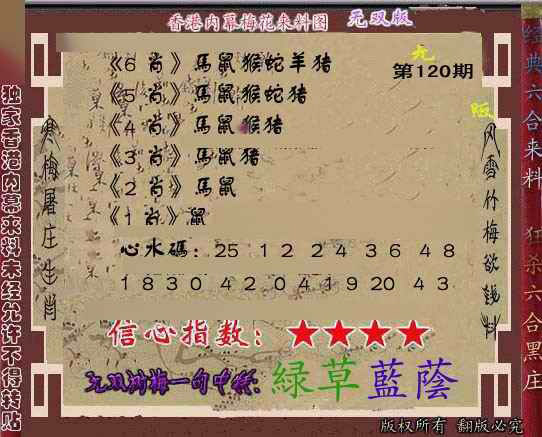 香港内幕梅花来料图 无双版
无
版
第120期
《6肖》馬鼠猴蛇羊猪
《5肖》馬鼠猴蛇猪
《4肖》馬鼠猴猪
《3肖》馬鼠猪
《2肖》馬鼠
《1肖》鼠
心水碼：25 12 24 36 48
18 30 42 04 19 20 43
信心指数：★★★★
无双 梅一句中特：綠草藍蔭
独家香港内幕来料未经允许不得转贴
寒梅屠庄生肖
风雪竹梅欲钱料
经典六合来料 狂杀六合黑庄
版权所有 翻版必究